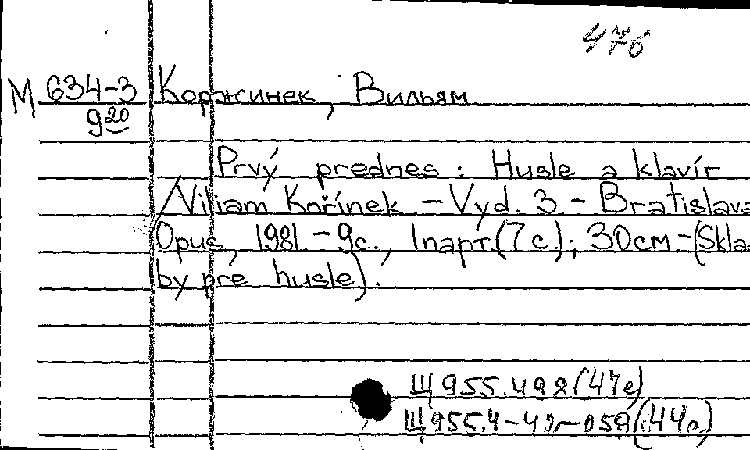 476
М 634-3 Коржинек, Вильям
9 20
Prvý prednes : Husle a klavír
/Viliam Kořínek – Vyd. 3. – Bratislava
Opus, 1981. – 9с., 1парт.(7с.); 30см – (Skla
by pre husle).
Щ955.498(47е)
Щ955.4-4